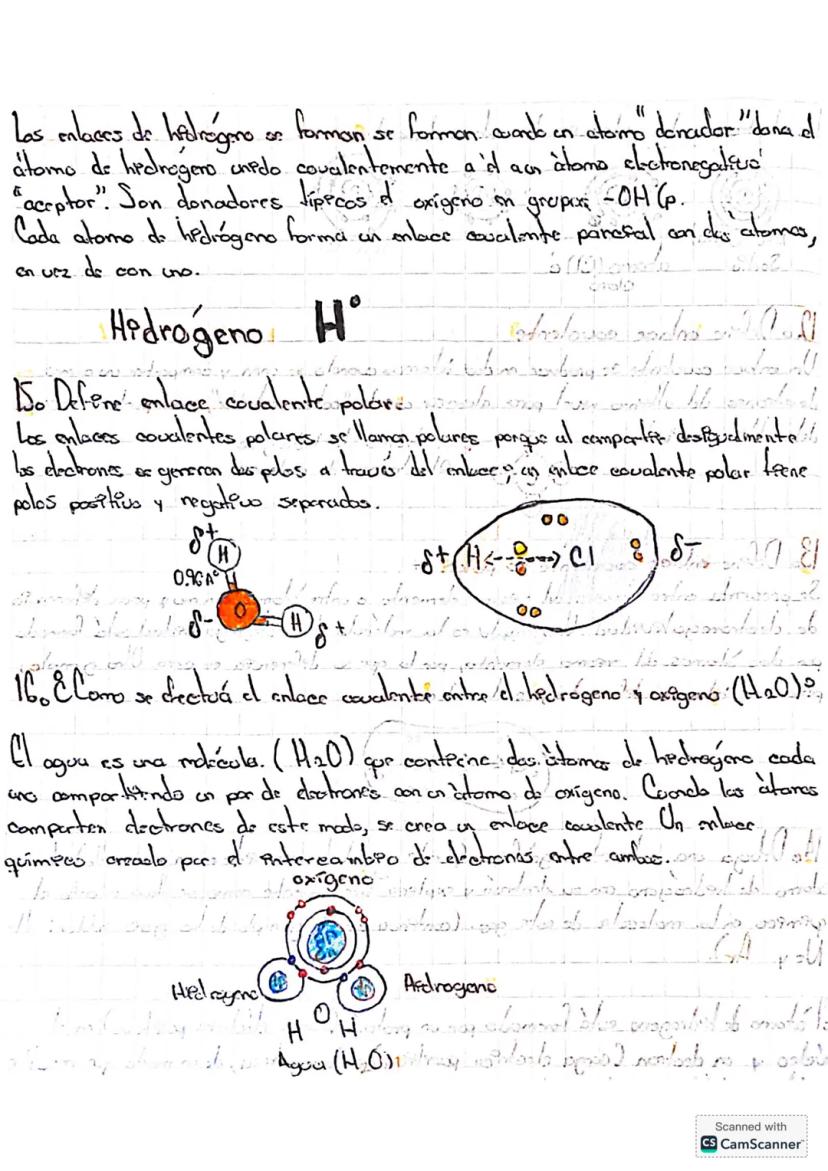 Los enlaces de hidrógeno se forman se forman cuando un atomo "donador" dona el
átomo de hidrógeno unido covalentemente a él a un átomo electronegativo
"aceptor". Son donadores típicos el oxígeno en grupos -OH (p.
Cada atomo de hidrógeno forma un enlace covalente parcial con dos átomos,
en vez de con uno.
Hidrógeno H°
15. Define enlace covalente polar:
Los enlaces covalentes polares se llaman polares porque al compartir desigualmente
los electrones se generan dos polos a través del enlace; un enlace covalente polar tiene
polos positivo y negativo separados.
δ+ H
0.96 A°
δ- O H δ+
δ+ H Cl δ-
16. ¿Como se efectuá el enlace covalente entre el hidrógeno y oxígeno (H2O)?
El agua es una molécula. (H2O) que contiene dos átomos de hidrógeno cada
uno compartiendo un par de electrones con un átomo de oxígeno. Cuando los átomos
comparten electrones de este modo, se crea un enlace covalente Un enlace
químico creado por el intercambio de electrones entre ambos.
oxígeno
Hidrogeno Hidrogeno
H O H
Agua (H2O)
Scanned with
CS CamScanner